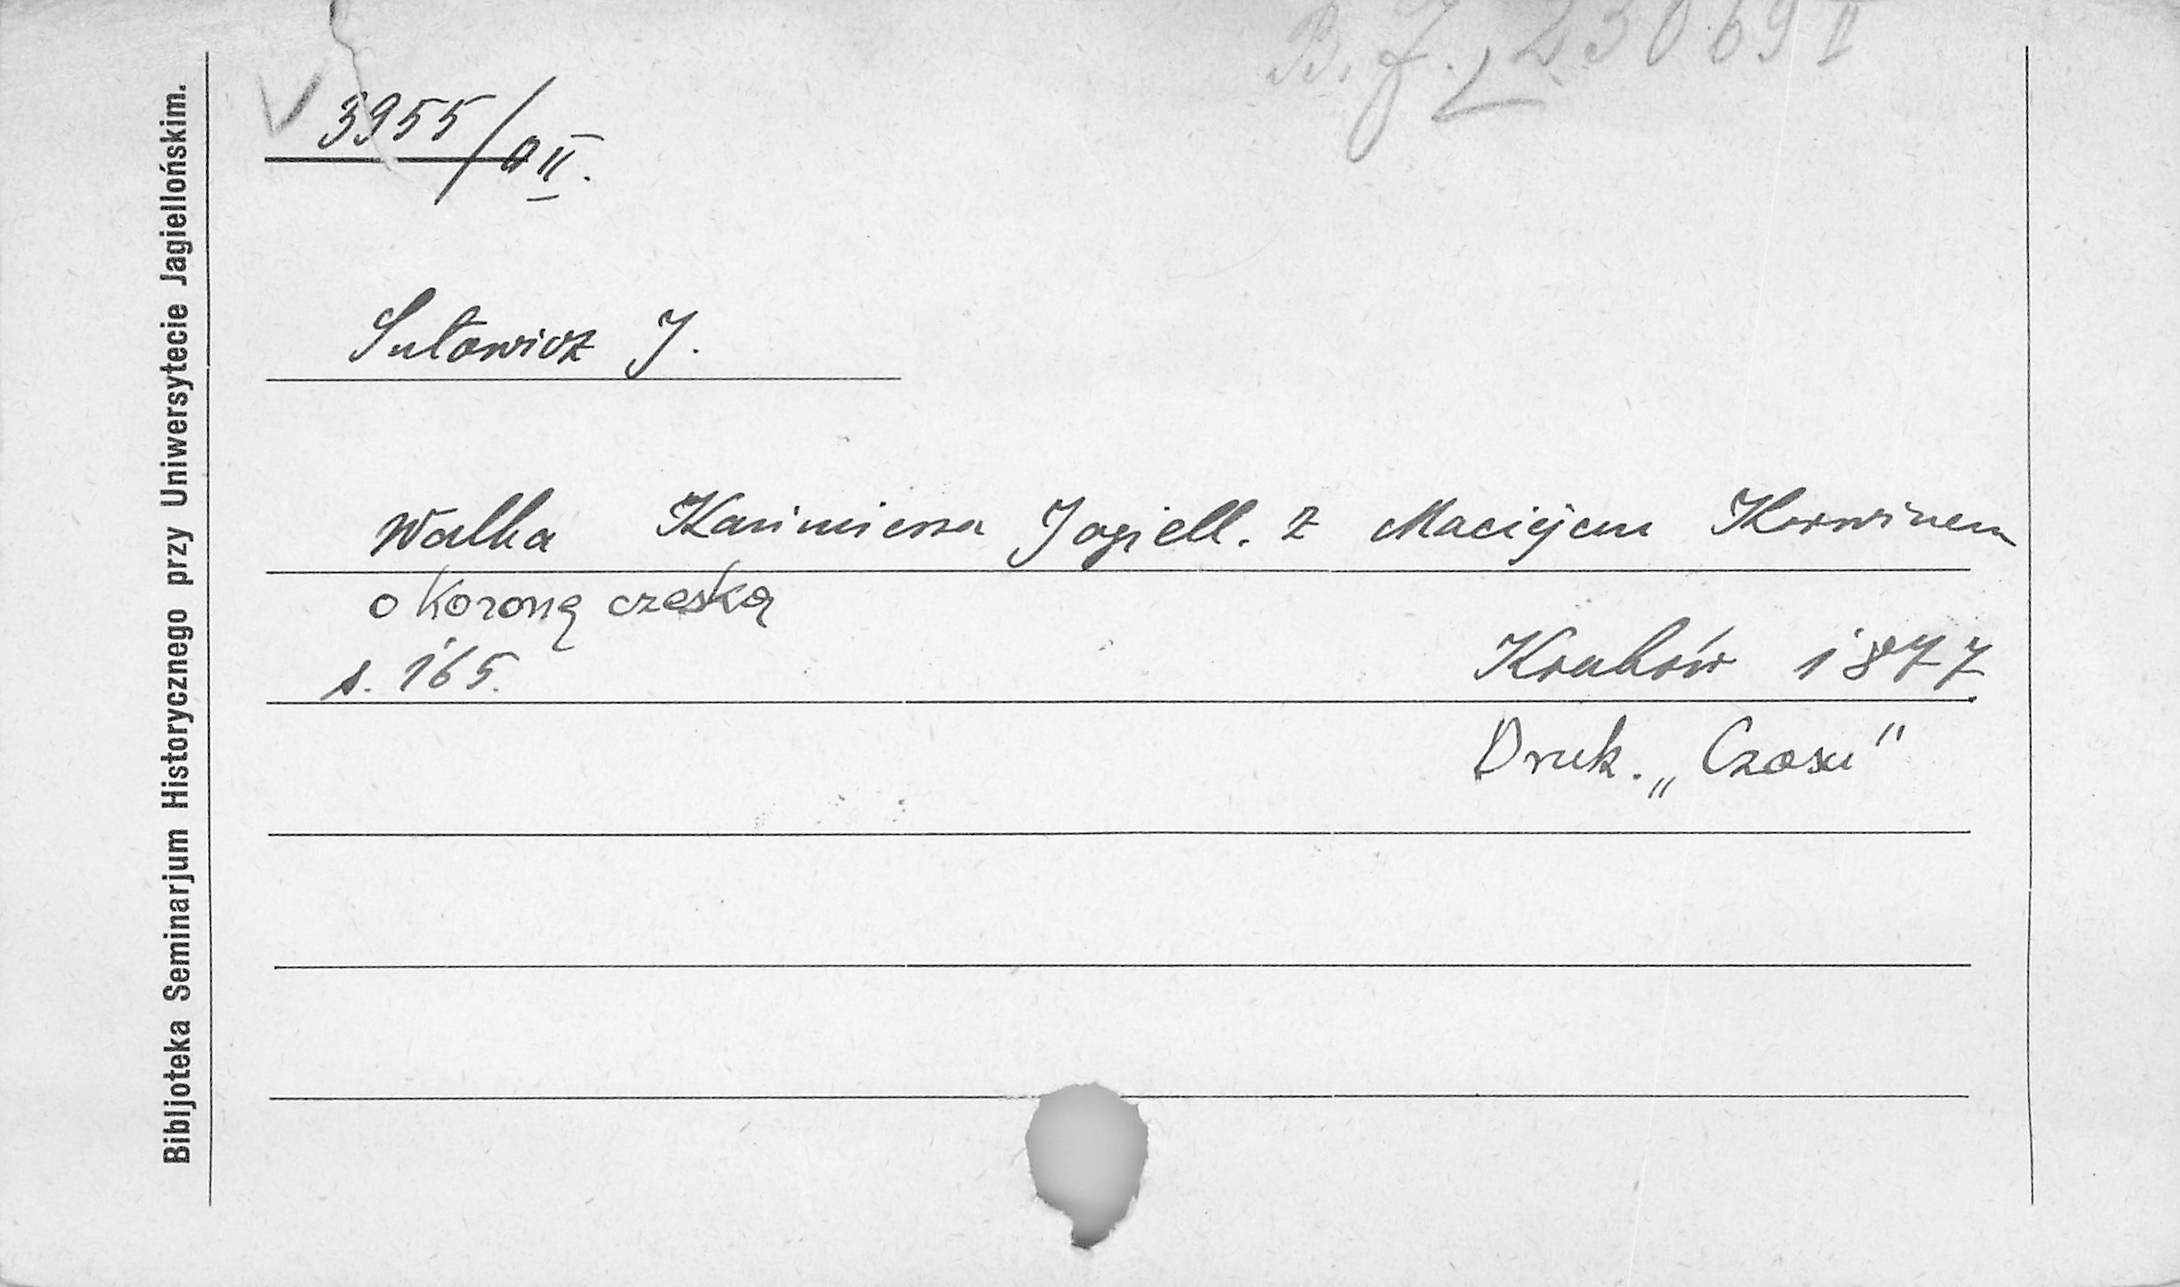 B. J. 23069 II
V 3955/a II.
Sutowicz J.
Walka Kazimierza Jagiell. z Maciejem Korwinem
o Koronę czeską
s. 165. Kraków 1877
Druk. „Czasu"
Bibljoteka Seminarjum Historycznego przy Uniwersytecie Jagiellońskim.